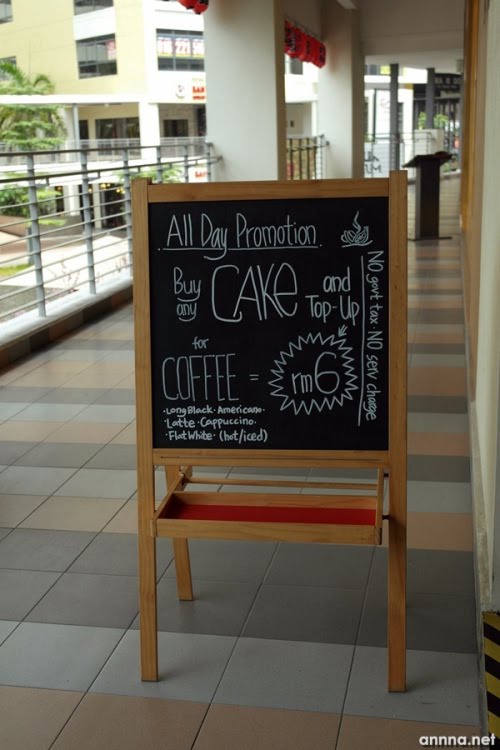 All Day Promotion
Buy any CAKE and Top-Up
for
COFFEE = rm6
·Long Black· Americano·
·Latte· Cappuccino·
·Flat White· (hot/iced)
NO govt tax · NO serv charge
annna.net